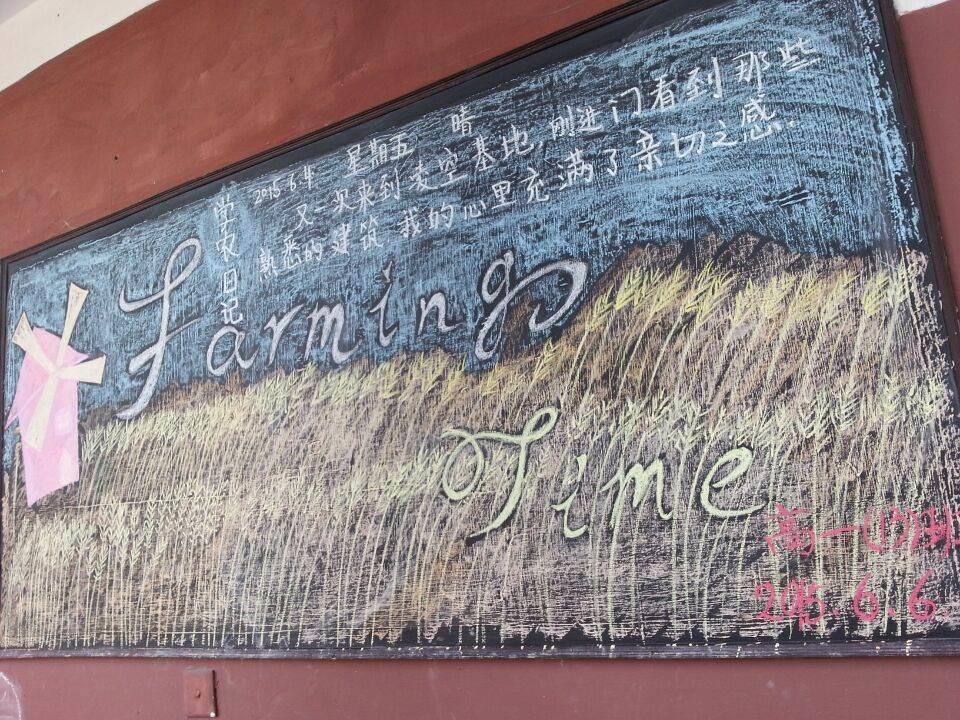 学农日记
2015.6.4 星期五 晴
又一次来到麦空基地,刚进门看到那些
熟悉的建筑 我的心里充满了亲切之感.
Farming
Time
高一(13)班
2015.6.6